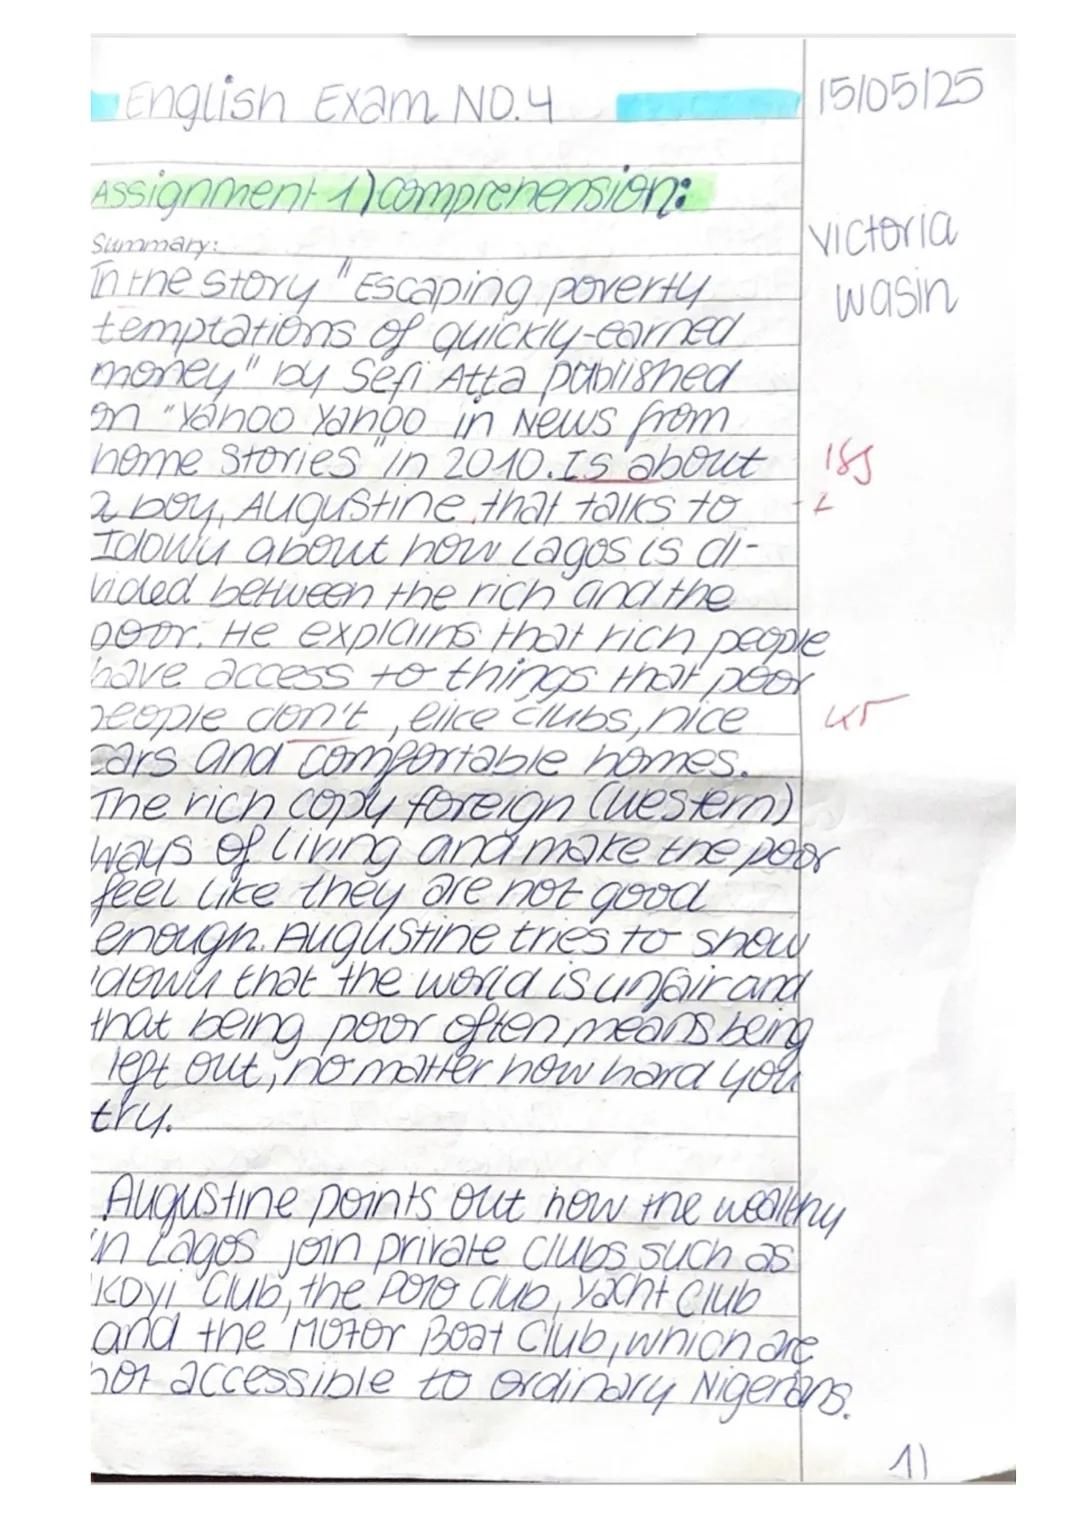 English Exam NO.4
15/05/25
Assignment 1) comprehension:
Victoria
wasin
Summary:
In the story "Escaping poverty
temptations of quickly-earned
money" by Sefi Atta published
on "Yahoo Yahoo in News from
home Stories" in 2010. Is about
a boy, Augustine that talks to
Idowu about how Lagos is di-
vided between the rich and the
poor. He explains that rich people
have access to things that poor
people don't, like clubs, nice
cars and comfortable homes.
The rich copy foreign (western)
ways of living and make the poor
feel like they are not good
enough. Augustine tries to show
idowu that the world is unfair and
that being poor often means being
left out, no matter how hard you
try.
Augustine points out how the wealthy
in Lagos join private clubs such as
Ikoyi Club, the Polo Club, Yacht Club
and the Motor Boat Club, which are
not accessible to ordinary Nigerians.
1)